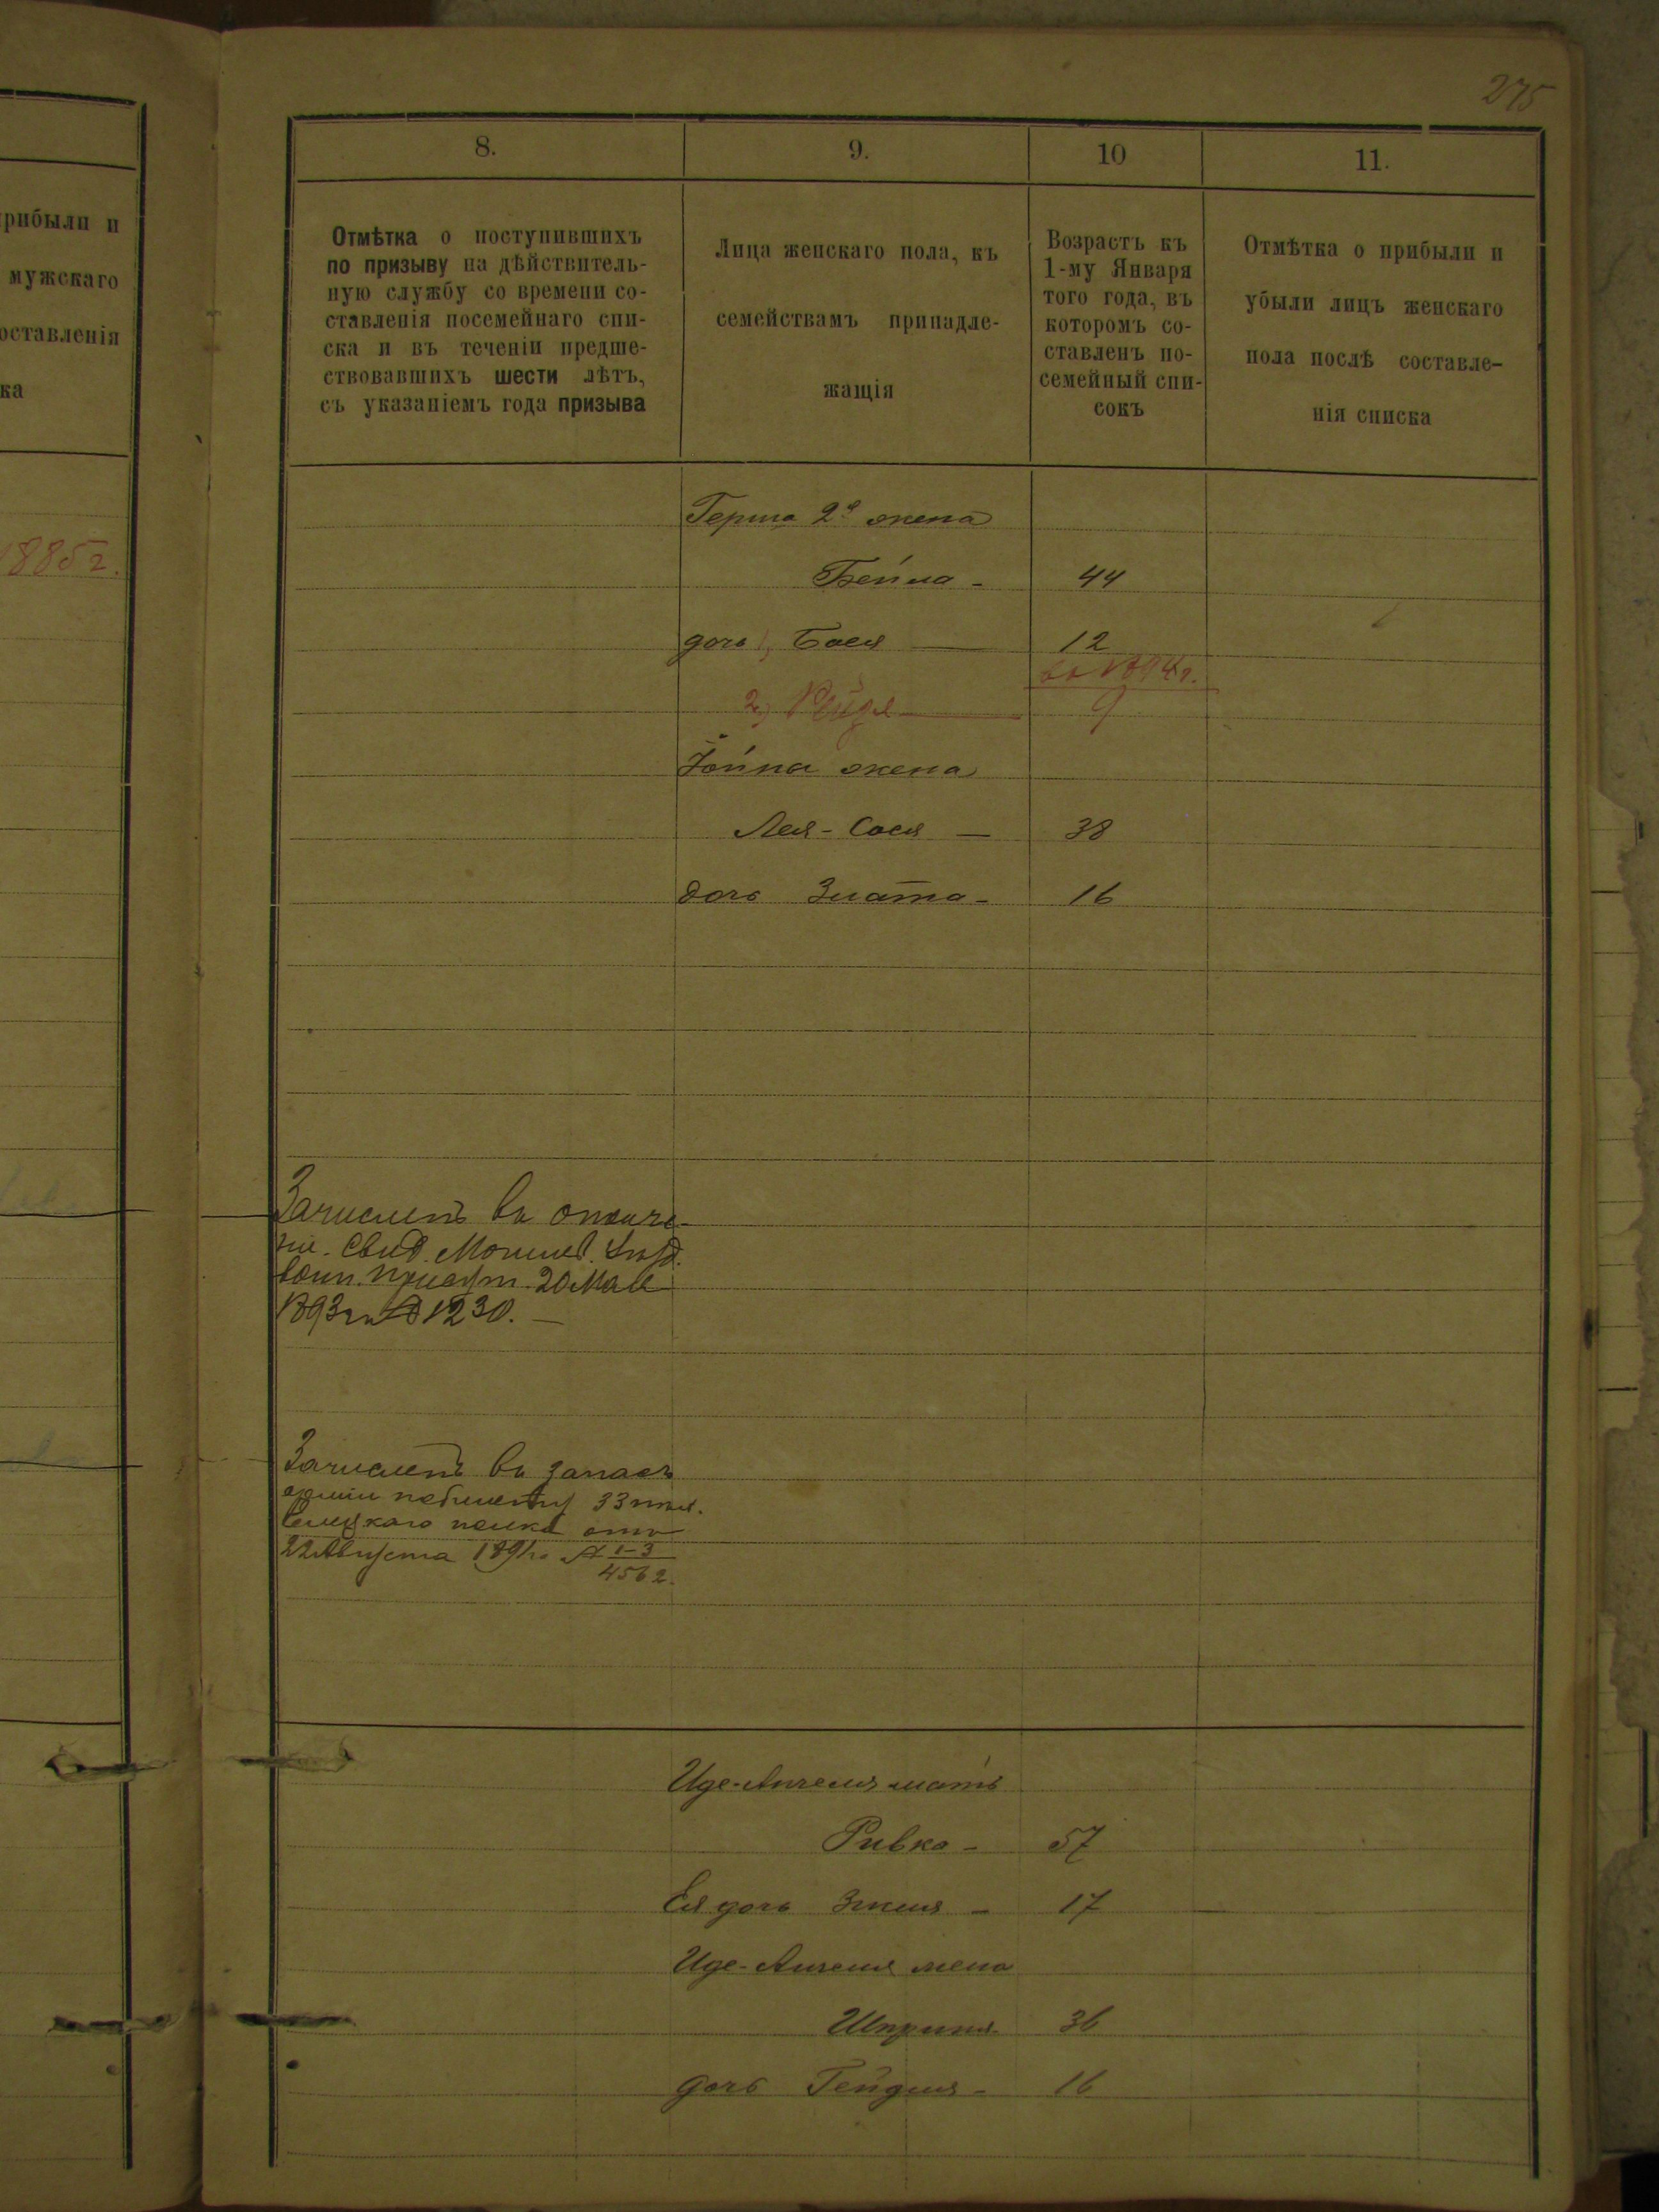 275
8.
9.
10
11.
рибыли и
мужскаго
оставленія
ка
1885 г.
Отмѣтка о поступившихъ
по призыву на дѣйствитель-
ную службу со времени со-
ставленія посемейнаго спи-
ска и въ теченіи предше-
ствовавшихъ шести лѣтъ,
съ указаніемъ года призыва
Лица женскаго пола, къ
семействамъ принадле-
жащія
Возрастъ къ
1-му Января
того года, въ
которомъ со-
ставленъ по-
семейный спи-
сокъ
Отмѣтка о прибыли и
убыли лицъ женскаго
пола послѣ составле-
нія списка
Герша 2я жена
Бейла - 44
дочь 1, Бася — 12
въ 1894 г.
2) — 9
жена
Лея-Сося — 38
дочь Злата - 16
Зачисленъ въ ополче-
ніе. Свид. Могилев. уѣзд.
воин. присут. 20 Мая
1893 г. № 1230. —
Зачисленъ въ запасъ
арміи 33 пѣх.
Елецкаго полка отъ
22 Августа 1891 г. № 1-3
4562.
Иде- мать
Ривка - 57
Ея дочь - 17
Иде- жена
Шприня - 36
дочь Гейдля - 16